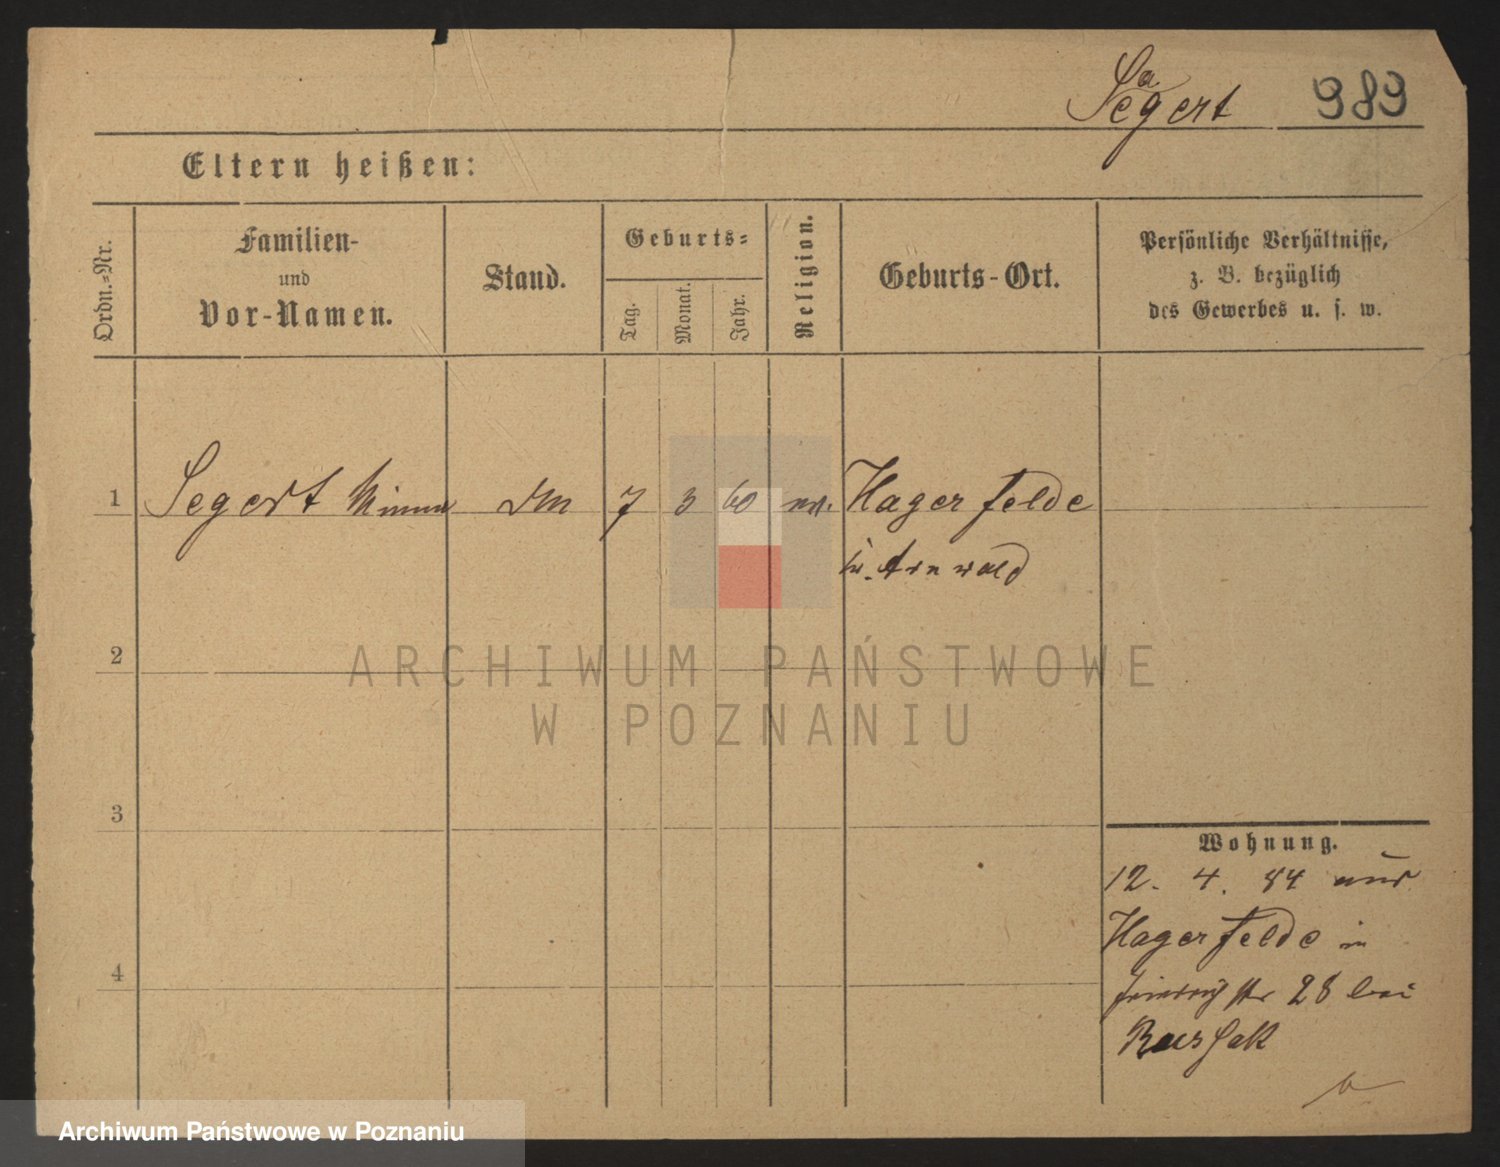 Segert 989
a
Eltern heißen:
Ordn.-Nr.
Familien-
und
Vor-Namen.
Stand.
Geburts-
Tag.
Monat.
Jahr.
Religion.
Geburts-Ort.
Persönliche Verhältnisse,
z. B. bezüglich
des Gewerbes u. s. w.
1 Segert Minna 7 3 60 Hagerfelde
Arnwald
2
ARCHIWUM PAŃSTWOWE
W POZNANIU
3
Wohnung.
12. 4. 84 aus
Hagerfelde in
4
28 bei
Archiwum Państwowe w Poznaniu